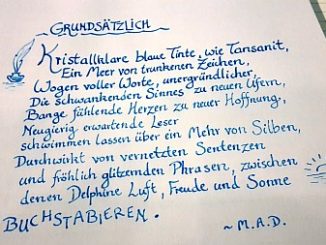 GRUNDSÄTZLICH
Kristallklare blaue Tinte, wie Tansanit,
Ein Meer von trunkenen Zeichen,
Wogen voller Worte, unergründlicher
Die schwankenden Sinnes zu neuen Ufern,
Bange fühlende Herzen zu neuer Hoffnung,
Neugierig erwartende Leser
schwimmen lassen über ein Mehr von Silben,
Durchwirkt von vernetzten Sentenzen
und fröhlich glitzernden Phrasen, zwischen
denen Delphine Luft, Freude und Sonne
BUCHSTABIEREN.
~M.A.D.